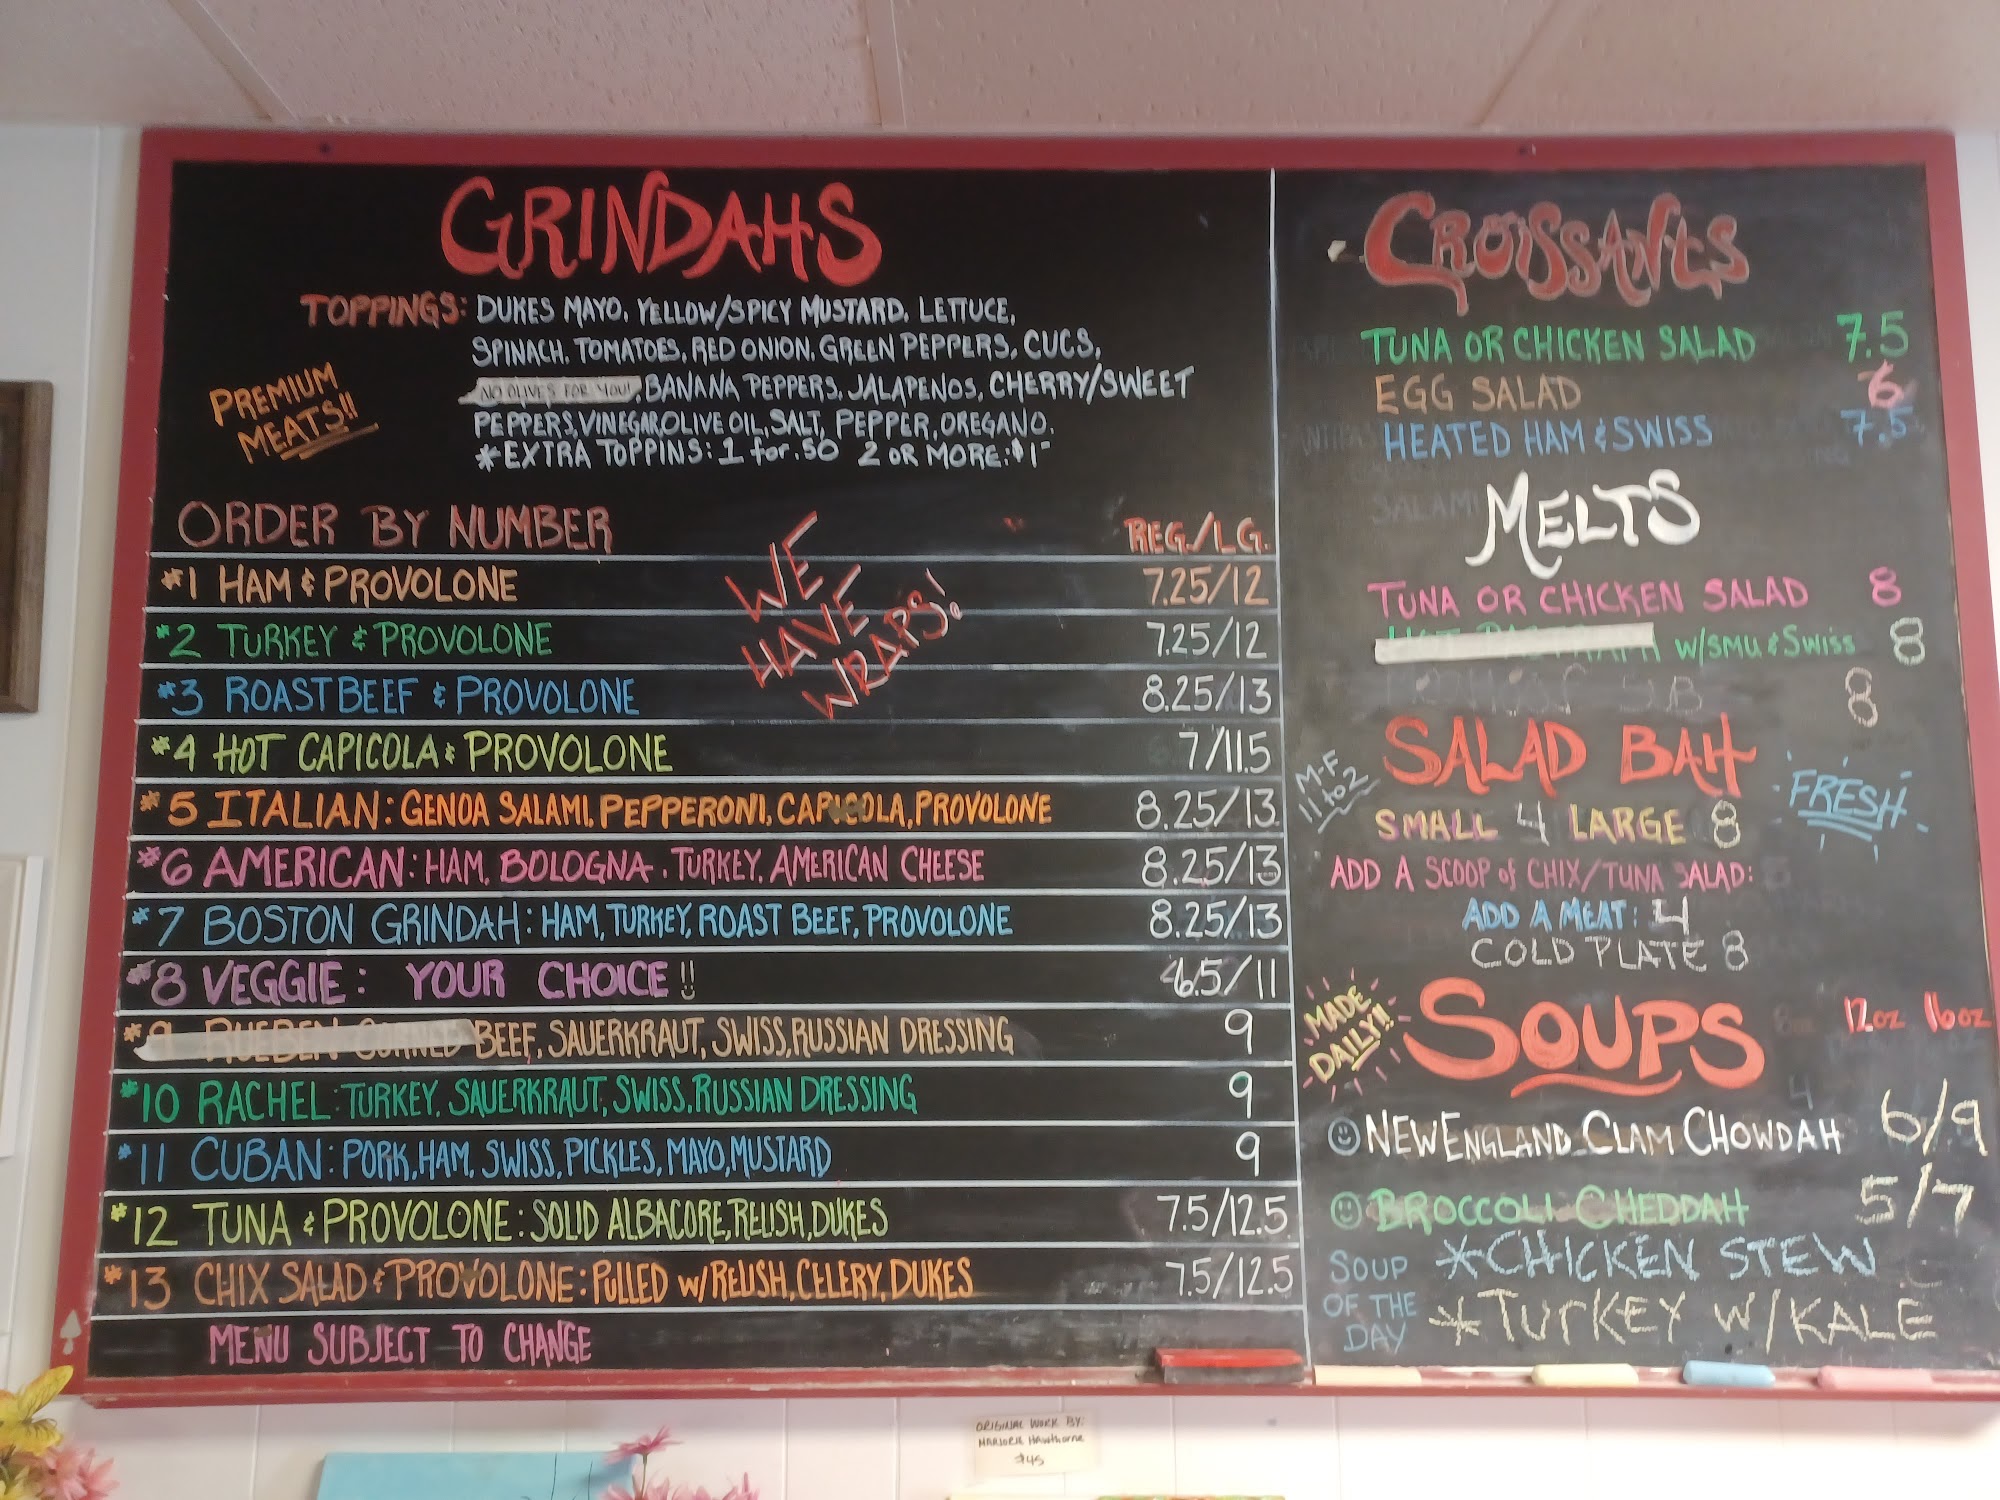 GRINDAHS
TOPPINGS: DUKES MAYO, YELLOW/SPICY MUSTARD, LETTUCE,
SPINACH, TOMATOES, RED ONION, GREEN PEPPERS, CUCS,
NO OLIVES FOR YOU!, BANANA PEPPERS, JALAPENOS, CHERRY/SWEET
PEPPERS, VINEGAR, OLIVE OIL, SALT, PEPPER, OREGANO.
*EXTRA TOPPINS: 1 for .50 2 OR MORE: $1
PREMIUM
MEATS!!
ORDER BY NUMBER
REG./LG.
WE
HAVE
WRAPS!
#1 HAM & PROVOLONE 7.25/12
#2 TURKEY & PROVOLONE 7.25/12
#3 ROAST BEEF & PROVOLONE 8.25/13
#4 HOT CAPICOLA & PROVOLONE 7/11.5
#5 ITALIAN: GENOA SALAMI, PEPPERONI, CAPICOLA, PROVOLONE 8.25/13
#6 AMERICAN: HAM, BOLOGNA, TURKEY, AMERICAN CHEESE 8.25/13
#7 BOSTON GRINDAH: HAM, TURKEY, ROAST BEEF, PROVOLONE 8.25/13
#8 VEGGIE: YOUR CHOICE!! 6.5/11
#9 RUEBEN CORNED BEEF, SAUERKRAUT, SWISS, RUSSIAN DRESSING 9
#10 RACHEL: TURKEY, SAUERKRAUT, SWISS, RUSSIAN DRESSING 9
#11 CUBAN: PORK, HAM, SWISS, PICKLES, MAYO, MUSTARD 9
#12 TUNA & PROVOLONE: SOLID ALBACORE, RELISH, DUKES 7.5/12.5
#13 CHIX SALAD & PROVOLONE: PULLED W/RELISH, CELERY, DUKES 7.5/12.5
MENU SUBJECT TO CHANGE
CROISSANTS
TUNA OR CHICKEN SALAD 7.5
EGG SALAD 6
HEATED HAM & SWISS 7.5
MELTS
TUNA OR CHICKEN SALAD 8
W/SMU & SWISS 8
8
SALAD BAH
M-F
11 to 2
FRESH
SMALL 4 LARGE 8
ADD A SCOOP of CHIX/TUNA SALAD:
ADD A MEAT: 4
COLD PLATE 8
MADE
DAILY!!
SOUPS
12oz 16oz
NEW ENGLAND CLAM CHOWDAH 6/9
BROCCOLI CHEDDAH 5/7
SOUP
OF THE
DAY
*CHICKEN STEW
*TURKEY W/KALE
ORIGINAL WORK BY:
MARJORIE HAWTHORNE
$45